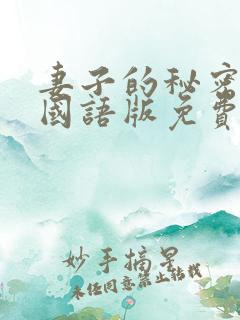 妻子的秘密
國語版免費
妙手摘星
未经同意禁止转载